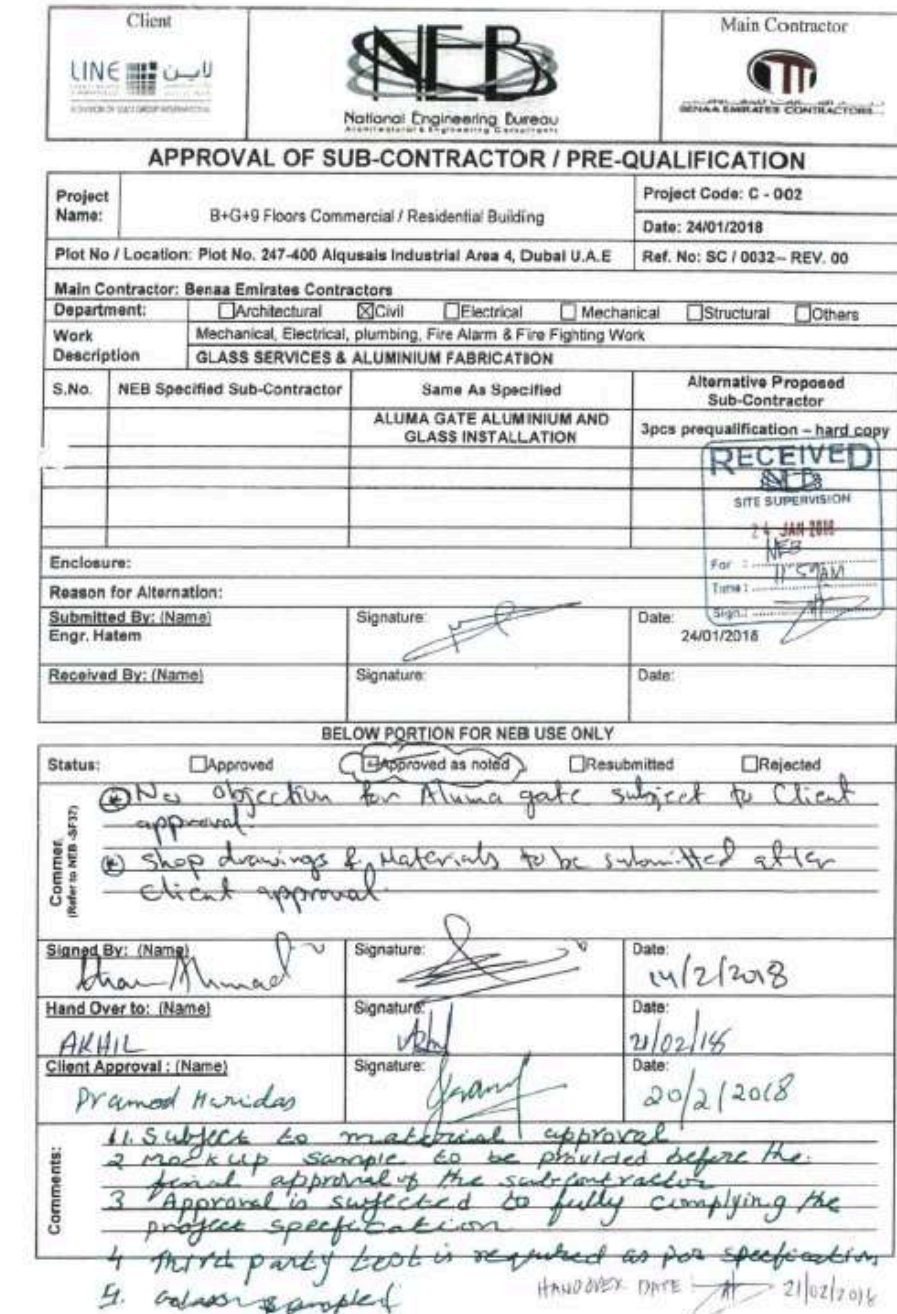 Client
Main Contractor
LINE لاين
NEB
National Engineering Bureau
Architectural & Engineering Consultants
BENAA EMIRATES CONTRACTORS
APPROVAL OF SUB-CONTRACTOR / PRE-QUALIFICATION
Project Name: B+G+9 Floors Commercial / Residential Building
Project Code: C - 002
Date: 24/01/2018
Plot No / Location: Plot No. 247-400 Alqusais Industrial Area 4, Dubai U.A.E
Ref. No: SC / 0032-- REV. 00
Main Contractor: Benaa Emirates Contractors
Department: Architectural Civil Electrical Mechanical Structural Others
Work Description
Mechanical, Electrical, plumbing, Fire Alarm & Fire Fighting Work
GLASS SERVICES & ALUMINIUM FABRICATION
S.No. NEB Specified Sub-Contractor Same As Specified Alternative Proposed Sub-Contractor
ALUMA GATE ALUMINIUM AND GLASS INSTALLATION
3pcs prequalification – hard copy
RECEIVED
NEB
SITE SUPERVISION
24 JAN 2018
For : NEB
Time : 11:59AM
Sign.:
Enclosure:
Reason for Alternation:
Submitted By: (Name) Signature: Date:
Engr. Hatem 24/01/2018
Received By: (Name) Signature: Date:
BELOW PORTION FOR NEB USE ONLY
Status: Approved Approved as noted Resubmitted Rejected
Commen.
(Refer to NEB -SF37)
No objection for Aluma gate subject to Client
approval.
Shop drawings & Materials to be submitted after
Client approval.
Signed By: (Name) Signature: Date:
Ahmad 14/2/2018
Hand Over to: (Name) Signature: Date:
AKHIL 21/02/18
Client Approval : (Name) Signature: Date:
Pramod Haridas 20/2/2018
Comments:
1. Subject to material approval
2 Mock up sample to be provided before the
final approval of the subcontractor
3 Approval is subjected to fully complying the
project specification
4 Third party test is required as per specification
5.
HANDOVER DATE 21/02/2018